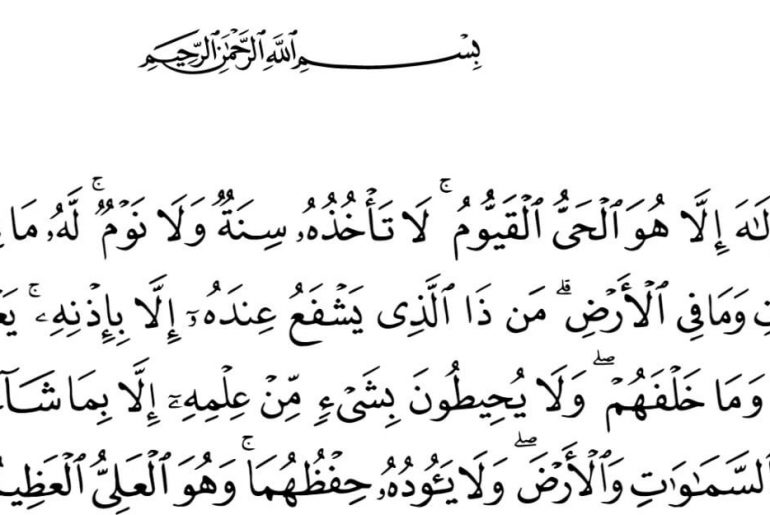 بِسْمِ ٱللَّهِ ٱلرَّحْمَٰنِ ٱلرَّحِيمِ
إِلَّا هُوَ ٱلْحَىُّ ٱلْقَيُّومُ ۚ لَا تَأْخُذُهُۥ سِنَةٌۭ وَلَا نَوْمٌۭ ۚ لَّهُۥ مَا
وَمَا فِى ٱلْأَرْضِ ۗ مَن ذَا ٱلَّذِى يَشْفَعُ عِندَهُۥٓ إِلَّا بِإِذْنِهِۦ ۚ
وَمَا خَلْفَهُمْ ۖ وَلَا يُحِيطُونَ بِشَىْءٍۢ مِّنْ عِلْمِهِۦٓ إِلَّا بِمَا
ٱلسَّمَٰوَٰتِ وَٱلْأَرْضَ ۖ وَلَا يَـُٔودُهُۥ حِفْظُهُمَا ۚ وَهُوَ ٱلْعَلِىُّ